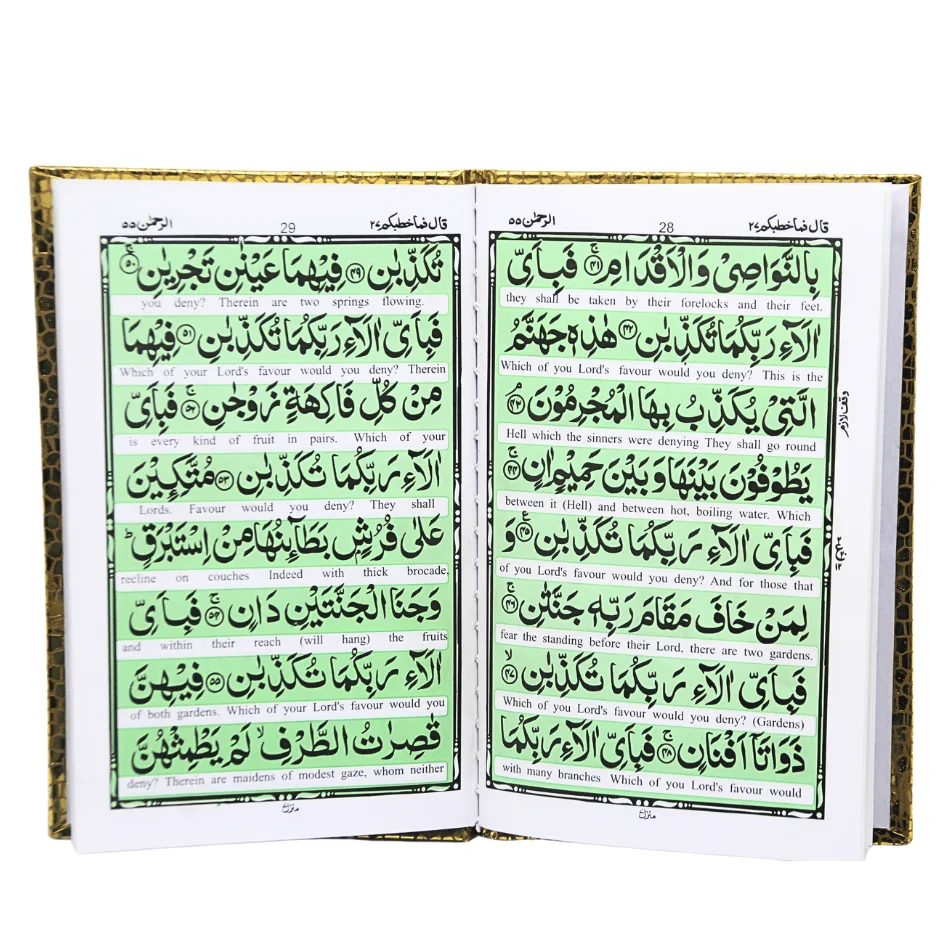 قال فما خطبكم ٢٧
28
الرحمٰن ٥٥
بِالنَّوَاصِیْ وَالْاَقْدَامِ ﴿٤١﴾ فَبِاَیِّ
they shall be taken by their forelocks and their feet.
اٰلَآءِ رَبِّكُمَا تُكَذِّبٰنِ ﴿٤٢﴾ هٰذِهٖ جَهَنَّمُ
Which of you Lord's favour would you deny? This is the
الَّتِیْ یُكَذِّبُ بِهَا الْمُجْرِمُوْنَ ﴿٤٣﴾
Hell which the sinners were denying They shall go round
یَطُوْفُوْنَ بَیْنَهَا وَ بَیْنَ حَمِیْمٍ اٰنٍ ﴿٤٤﴾
between it (Hell) and between hot, boiling water. Which
فَبِاَیِّ اٰلَآءِ رَبِّكُمَا تُكَذِّبٰنِ ﴿٤٥﴾ وَ
of you Lord's favour would you deny? And for those that
لِمَنْ خَافَ مَقَامَ رَبِّهٖ جَنَّتٰنِ ﴿٤٦﴾
fear the standing before their Lord, there are two gardens.
فَبِاَیِّ اٰلَآءِ رَبِّكُمَا تُكَذِّبٰنِ ﴿٤٧﴾
Which of you Lord's favour would you deny? (Gardens)
ذَوَاتَاۤ اَفْنَانٍ ﴿٤٨﴾ فَبِاَیِّ اٰلَآءِ رَبِّكُمَا
with many branches Which of you Lord's favour would
وقف لازم
قال فما خطبكم ٢٧
29
الرحمٰن ٥٥
تُكَذِّبٰنِ ﴿٤٩﴾ فِیْهِمَا عَیْنٰنِ تَجْرِیٰنِ ﴿٥٠﴾
you deny? Therein are two springs flowing.
فَبِاَیِّ اٰلَآءِ رَبِّكُمَا تُكَذِّبٰنِ ﴿٥١﴾ فِیْهِمَا
Which of your Lord's favour would you deny? Therein
مِنْ كُلِّ فَاكِهَةٍ زَوْجٰنِ ﴿٥٢﴾ فَبِاَیِّ
is every kind of fruit in pairs. Which of your
اٰلَآءِ رَبِّكُمَا تُكَذِّبٰنِ ﴿٥٣﴾ مُتَّكِـِٕیْنَ
Lords. Favour would you deny? They shall
عَلٰی فُرُشٍۭ بَطَآىِٕنُهَا مِنْ اِسْتَبْرَقٍ ؕ
recline on couches Indeed with thick brocade,
وَجَنَا الْجَنَّتَیْنِ دَانٍ ﴿٥٤﴾ فَبِاَیِّ
and within their reach (will hang) the fruits
اٰلَآءِ رَبِّكُمَا تُكَذِّبٰنِ ﴿٥٥﴾ فِیْهِنَّ
of both gardens. Which of your Lord's favour would you
قٰصِرٰتُ الطَّرْفِ ۙ لَمْ یَطْمِثْهُنَّ
deny? Therein are maidens of modest gaze, whom neither